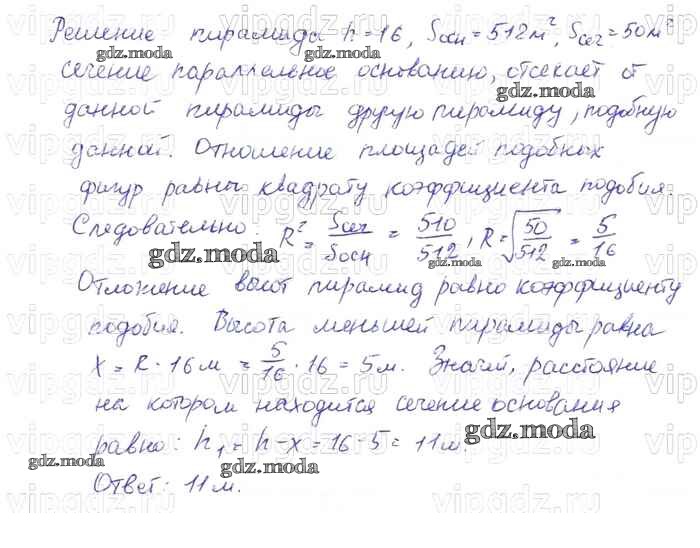 Решение пирамида h=16, Sосн=512м², Sсеч=50м²
сечение параллельное основанию, отсекает от
данной пирамиды другую пирамиду, подобную
данной. Отношение площадей подобных
фигур равны квадрату коэффициента подобия.
Следовательно: R² = Sсеч/Sосн = 510/512, R = √50/512 = 5/16
Отложение высот пирамид равно коэффициенту
подобия. Высота меньшей пирамиды равна
x = R · 16м = 5/16 · 16 = 5м. Значит, расстояние
на котором находится сечение основания
равно: h₁ = h-x = 16-5 = 11м.
Ответ: 11м.
gdz.moda
vipgdz.ru